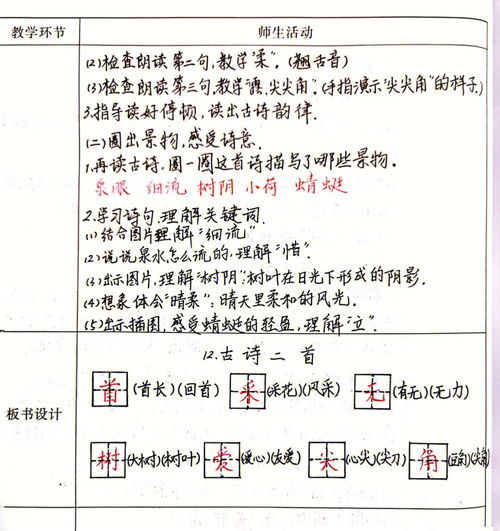 教学环节 师生活动
(2)检查朗读第二句,教学"柔"。(翘舌音)
(3)检查朗读第三句,教学"露、尖尖角"。(手指演示"尖尖角"的样子)
3.指导读好停顿,读出古诗韵律.
(二)圈出景物,感受诗意.
1.再读古诗,圈一圈这首诗描写了哪些景物。
泉眼 细流 树阴 小荷 蜻蜓
2.学习诗句.理解关键词.
(1)结合图片理解"细流"
(2)说说泉水怎么流的,理解"惜".
(3)出示图片,理解"树阴":树叶在日光下形成的阴影.
(4)想象体会"晴柔":晴天里柔和的风光.
(5)出示插图,感受蜻蜓的轻盈,理解"立".
板书设计
12.古诗二首
首(首长)(回首) 采(采花)(风采) 无(有无)(无力)
树(大树)(树叶) 爱(爱心)(友爱) 尖(心尖)(尖刀) 角(豆角)(尖角)